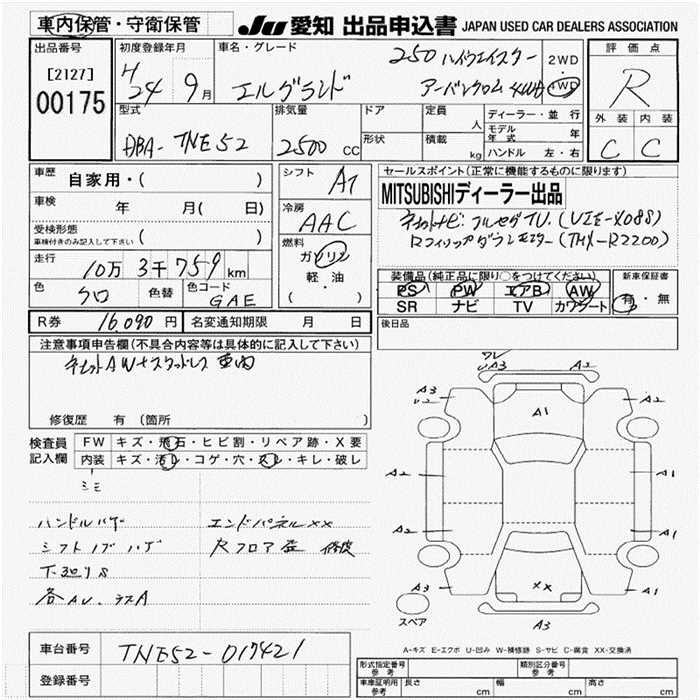 車内保管・守衛保管 JU 愛知 出品申込書 JAPAN USED CAR DEALERS ASSOCIATION
出品番号 [2127] 00175
初度登録年月 H24 9月
車名・グレード エルグランド 250 ハイウェイスター アーバンクロム 4WD
2WD・4WD
評価点 R
外装 内装
C C
型式 DBA-TNE52
排気量 2500 CC
ドア 形状
定員 人
積載 kg
ディーラー・並行
モデル年式 年
ハンドル 左・右
車歴 自家用・( )
車検 年 月( 日)
受検形態 車検付きのみ記入して下さい ( )
走行 10万 3千 759 km
色 クロ 色替 色コード GAE
シフト AT
冷房 AAC
燃料 ガソリン 軽・油 ( ・ )
セールスポイント(正常に機能するものに限ります)
MITSUBISHIディーラー出品
ナビ:フルセグTV.(VIE-X088)
Rフィリップダウンモニター(TMX-R2200)
装備品(純正品に限り○をつけてください)
PS PW エアB AW
SR ナビ TV カワシート
新車保証書 有・無
R券 16,090 円 名変通知期限 月 日
後日品
注意事項申告欄(不具合内容等は具体的に記入して下さい)
AW+スタッドレス 車内
修復歴 有(箇所 )
検査員記入欄 FW キズ・飛石・ヒビ割・リペア跡・X要
内装 キズ・汚レ・コゲ・穴・スレ・キレ・破レ
シミ
ハンドルハゲ エンドパネルXX
シフトノブハゲ Rフロア歪 修復
下廻りS
各AU.ラスA
ワレ
A3 U2 UA3 A2 A2
A1
A2 A1
A2 A1
A3 XX A1
スペア A3
A-キズ E-エクボ U-凹み W-補修跡 S-サビ C-腐食 XX-交換済
車台番号 TNE52-017421
登録番号
形式指定番号 参考 類別区分番号 参考
車庫証明用 参考 長さ cm 幅 cm 高さ cm